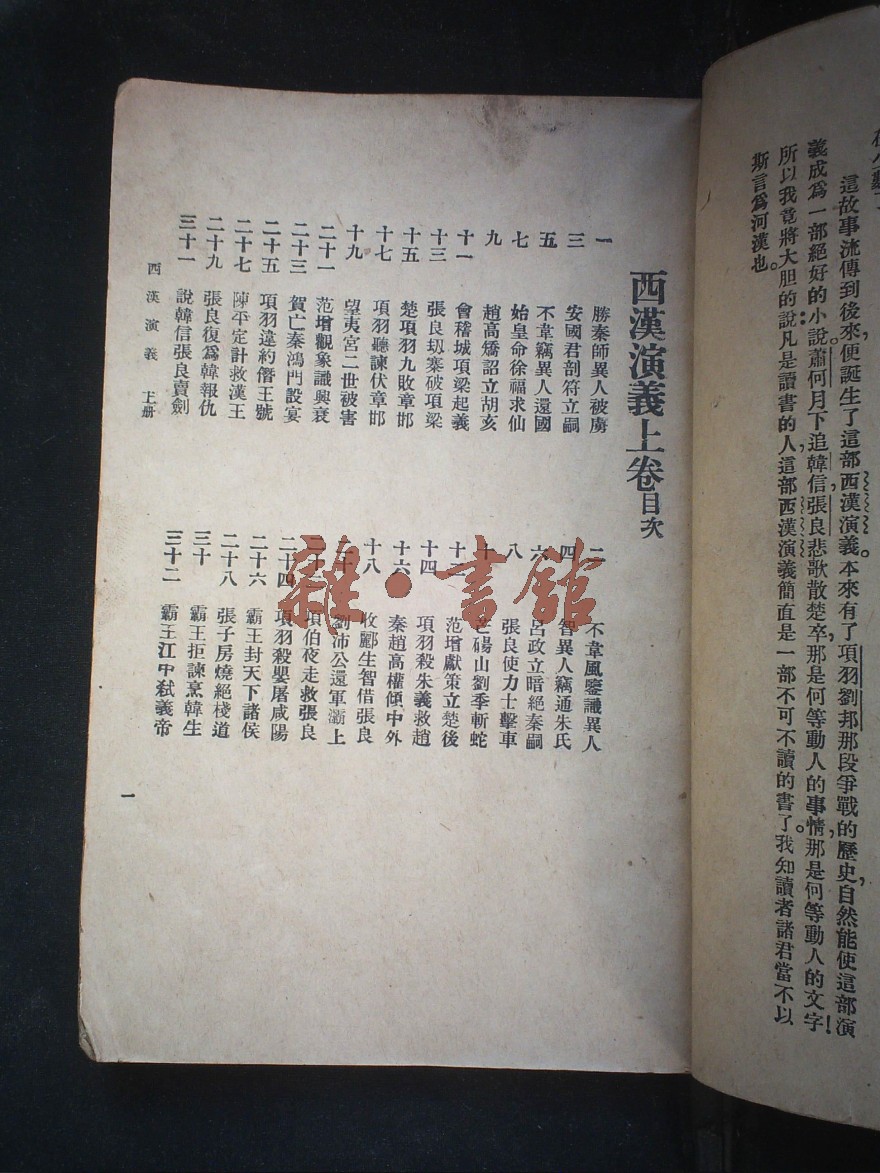 這故事流傳到後來，便誕生了這部西漢演義。本來有了項羽劉邦那段爭戰的歷史，自然能使這部演
義成爲一部絕好的小說。蕭何月下追韓信，張良悲歌散楚卒，那是何等動人的事情，那是何等動人的文字！
所以我竟將大胆的說：凡是讀書的人，這部西漢演義簡直是一部不可不讀的書了。我知讀者諸君當不以
斯言爲河漢也。
西漢演義上卷目次
一 勝秦師異人被虜
二 不韋風鑒識異人
三 安國君剖符立嗣
四 智異人竊通朱氏
五 不韋竊異人還國
六 呂政立暗絕秦嗣
七 始皇命徐福求仙
八 張良使力士擊車
九 趙高矯詔立胡亥
十 芒碭山劉季斬蛇
十一 會稽城項梁起義
十二 范增獻策立楚後
十三 張良刧寨破項梁
十四 項羽殺朱義救趙
十五 楚項羽九敗章邯
十六 秦趙高權傾中外
十七 項羽聽諫伏章邯
十八 收酈生智借張良
十九 望夷宮二世被害
二十 劉沛公還軍灞上
二十一 范增觀象識興衰
二十二 項伯夜走救張良
二十三 賀亡秦鴻門設宴
二十四 項羽殺嬰屠咸陽
二十五 項羽違約僭王號
二十六 霸王封天下諸侯
二十七 陳平定計救漢王
二十八 張子房燒絕棧道
二十九 張良復爲韓報仇
三十 霸王拒諫烹韓生
三十一 說韓信張良賣劍
三十二 霸王江中弒義帝
西漢演義 上册
一
雜·書館